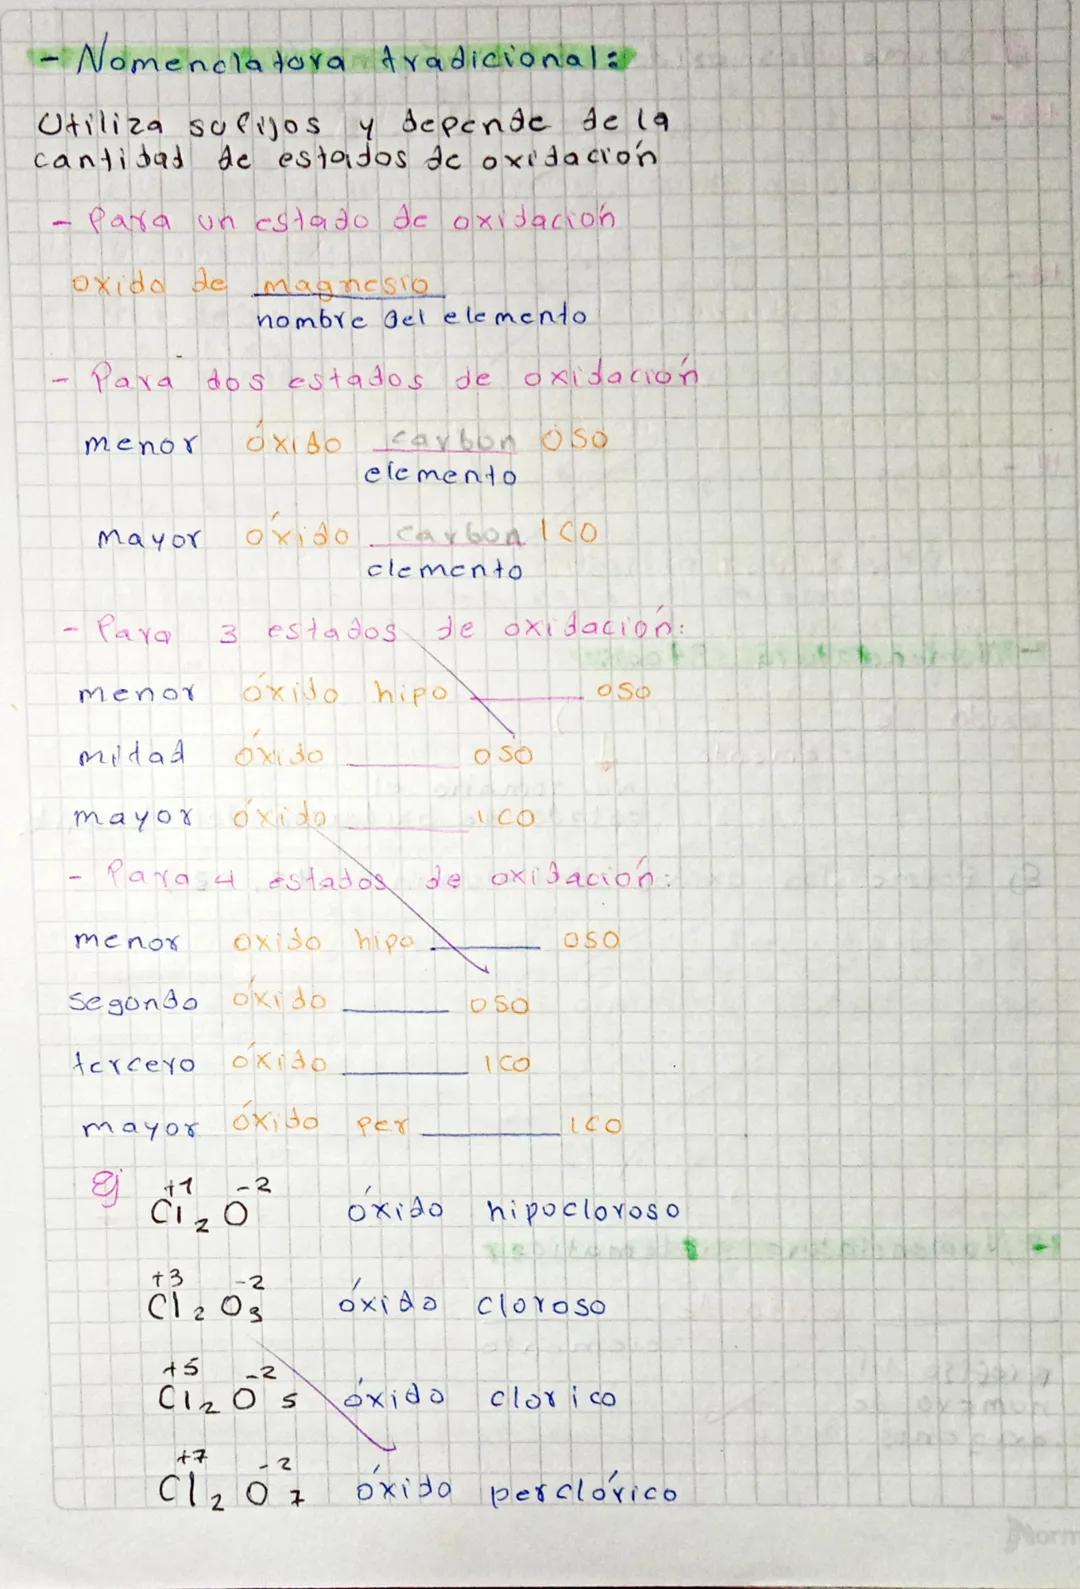 - Nomenclatura tradicional:
Utiliza sufijos y depende de la
cantidad de estados de oxidación
- Para un estado de oxidación
oxido de magnesio
nombre del elemento
- Para dos estados de oxidación
menor óxido carbon oso
elemento
mayor óxido carbon ICO
elemento
- Para 3 estados de oxidación:
menor óxido hipo ____ oso
mitad óxido ____ oso
mayor óxido ____ ICO
- Para 4 estados de oxidación:
menor oxido hipo ____ oso
segundo óxido ____ oso
tercero óxido ____ ICO
mayor óxido per ____ ICO
ej +1 -2
Cl2O óxido hipocloroso
+3 -2
Cl2O3 óxido cloroso
+5 -2
Cl2O5 óxido clorico
+7 -2
Cl2O7 óxido perclórico
Norm